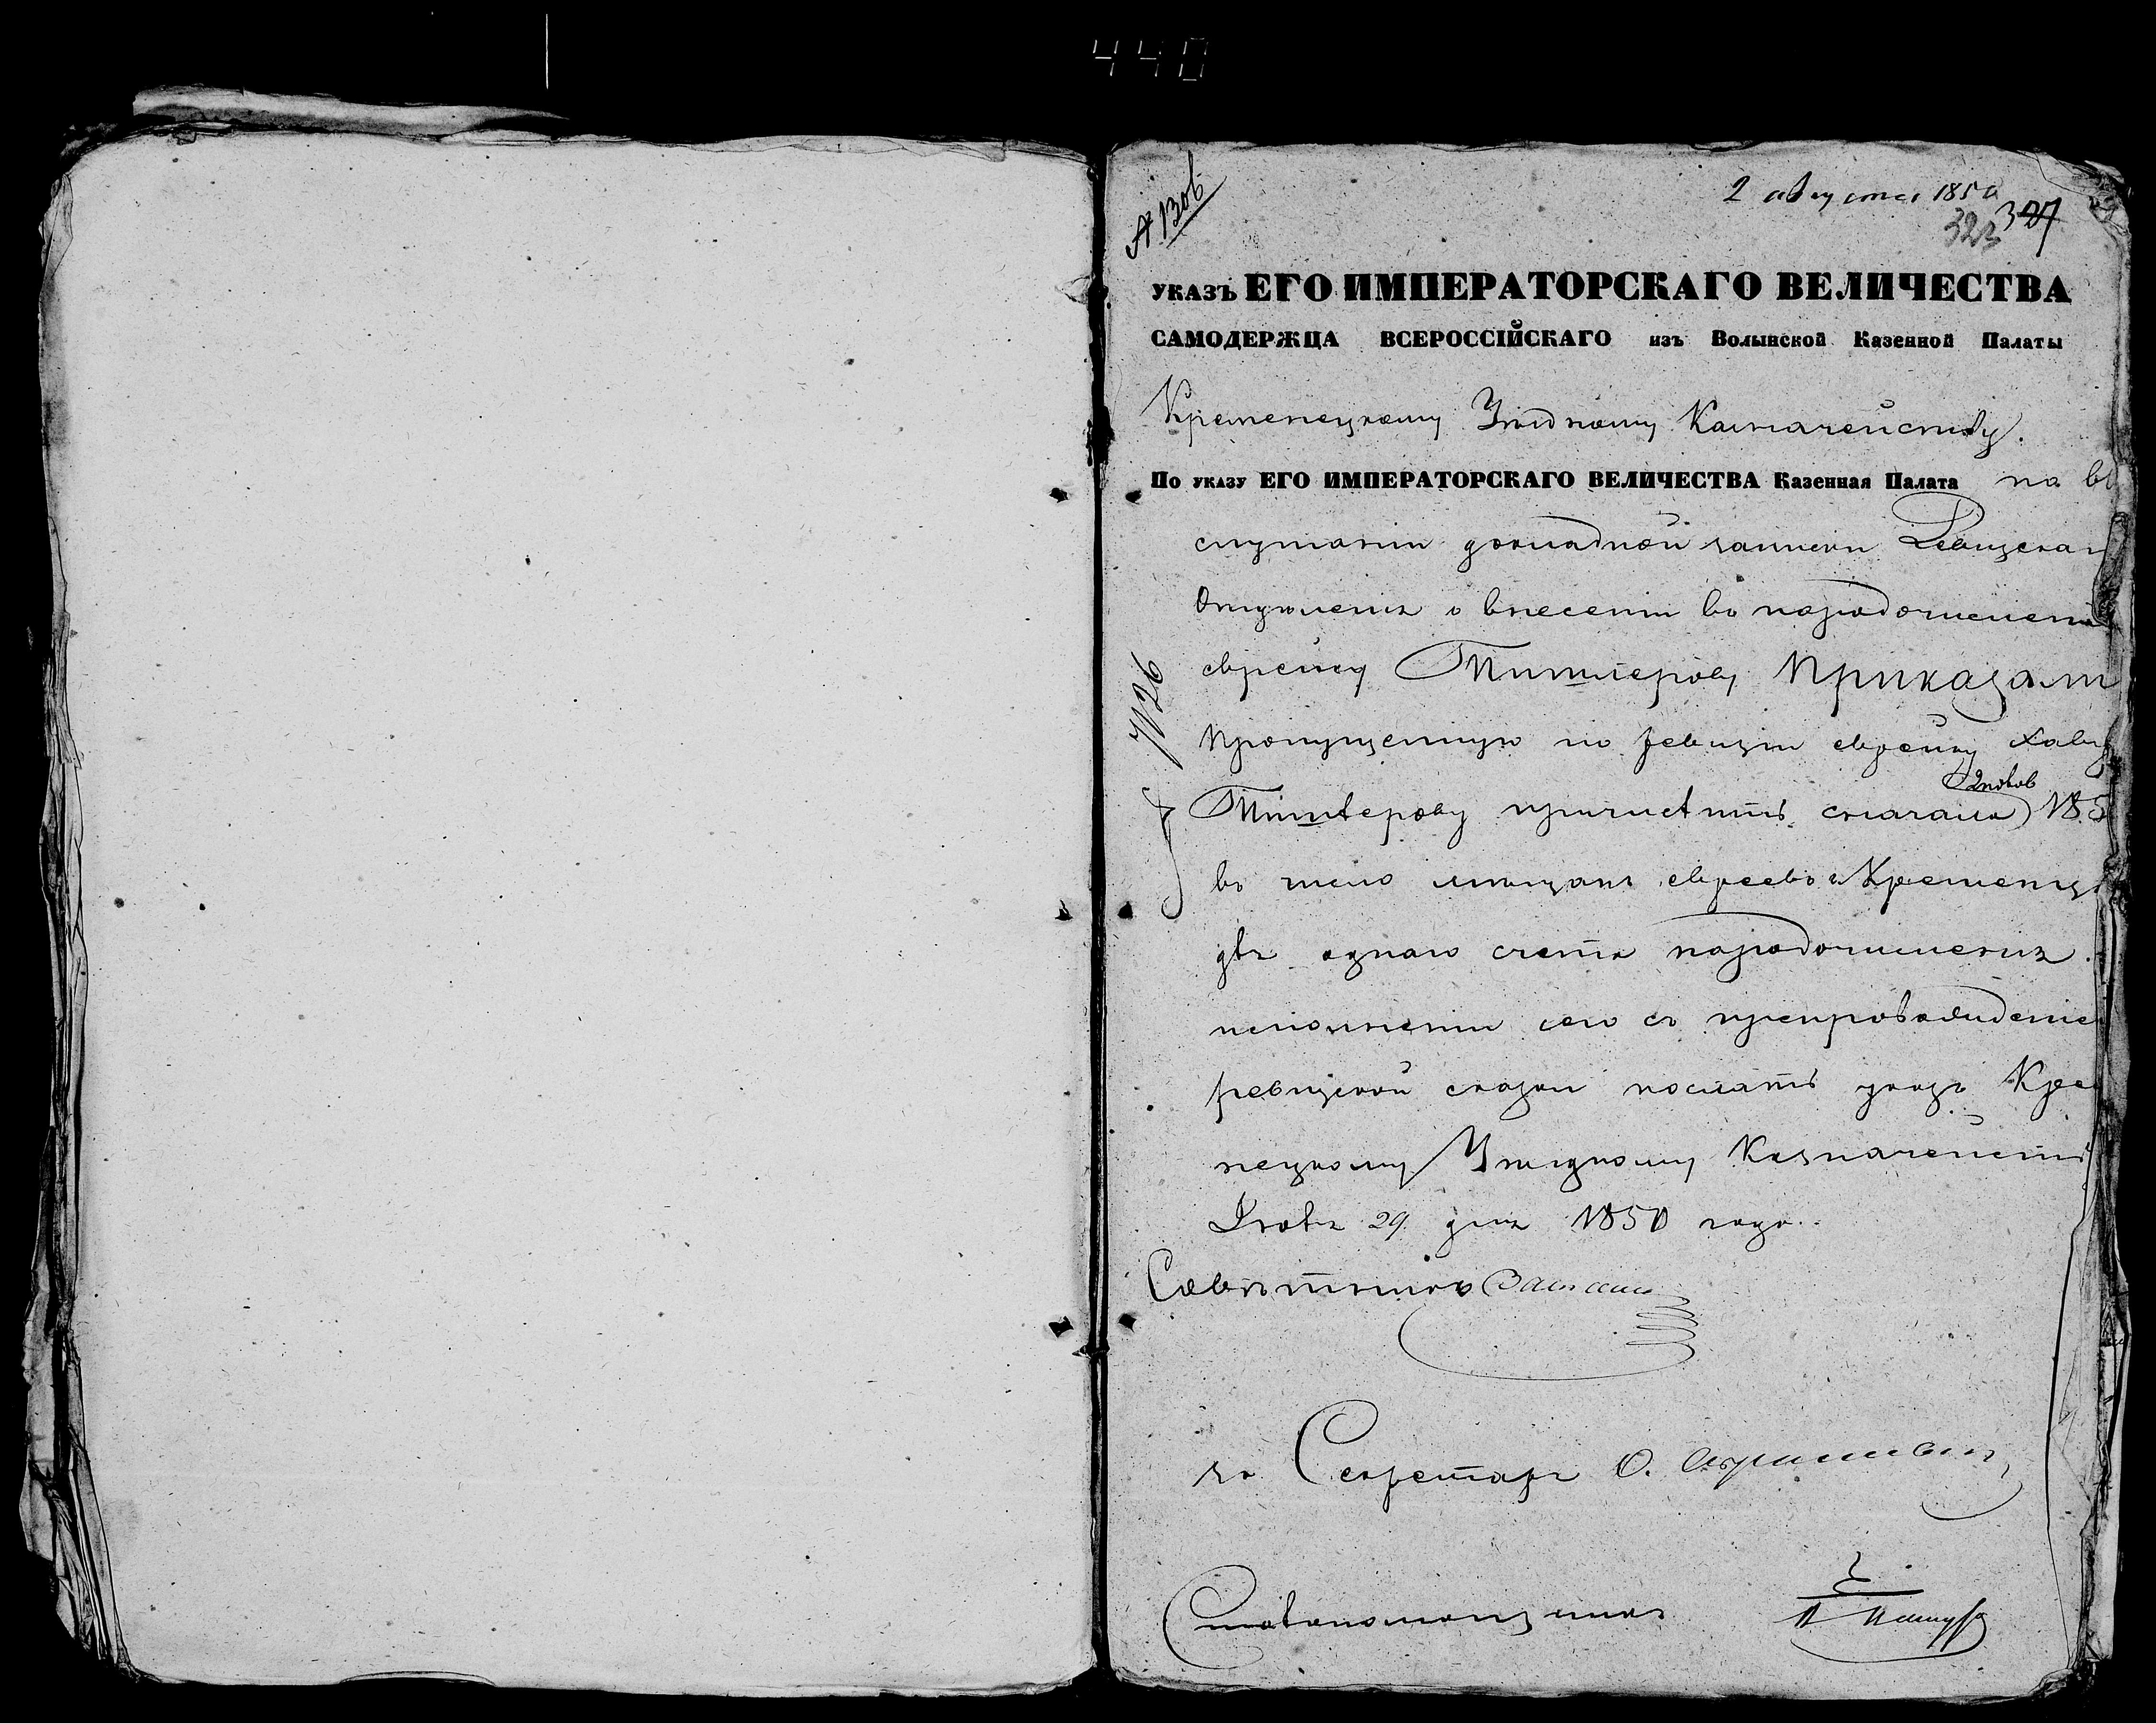 440
2 августа 1850
323 327
УКАЗЪ ЕГО ИМПЕРАТОРСКАГО ВЕЛИЧЕСТВА
САМОДЕРЖЦА ВСЕРОССІЙСКАГО изъ Волынской Казенной Палаты
Кременецкому Уѣздному Казначейству.
По указу ЕГО ИМПЕРАТОРСКАГО ВЕЛИЧЕСТВА Казенная Палата по вы
слушаніи докладной записки Ревизскаг
Отдѣленія о внесеніи въ народочислені
еврейку Приказали
пропущенную по ревизіи еврейку
причислить сначала 2 полов 185
въ число мѣщанъ евреевъ г. Кременца
для одного счета народочисленія.
исполненіи сего съ препровожденіе
ревизской сказки послать указъ Кре
нецкому Уѣздному Казначейств
Іюля 29 дня 1850 года.
Совѣтникъ
за Секретаря О.
Столоначальника
№ 7126